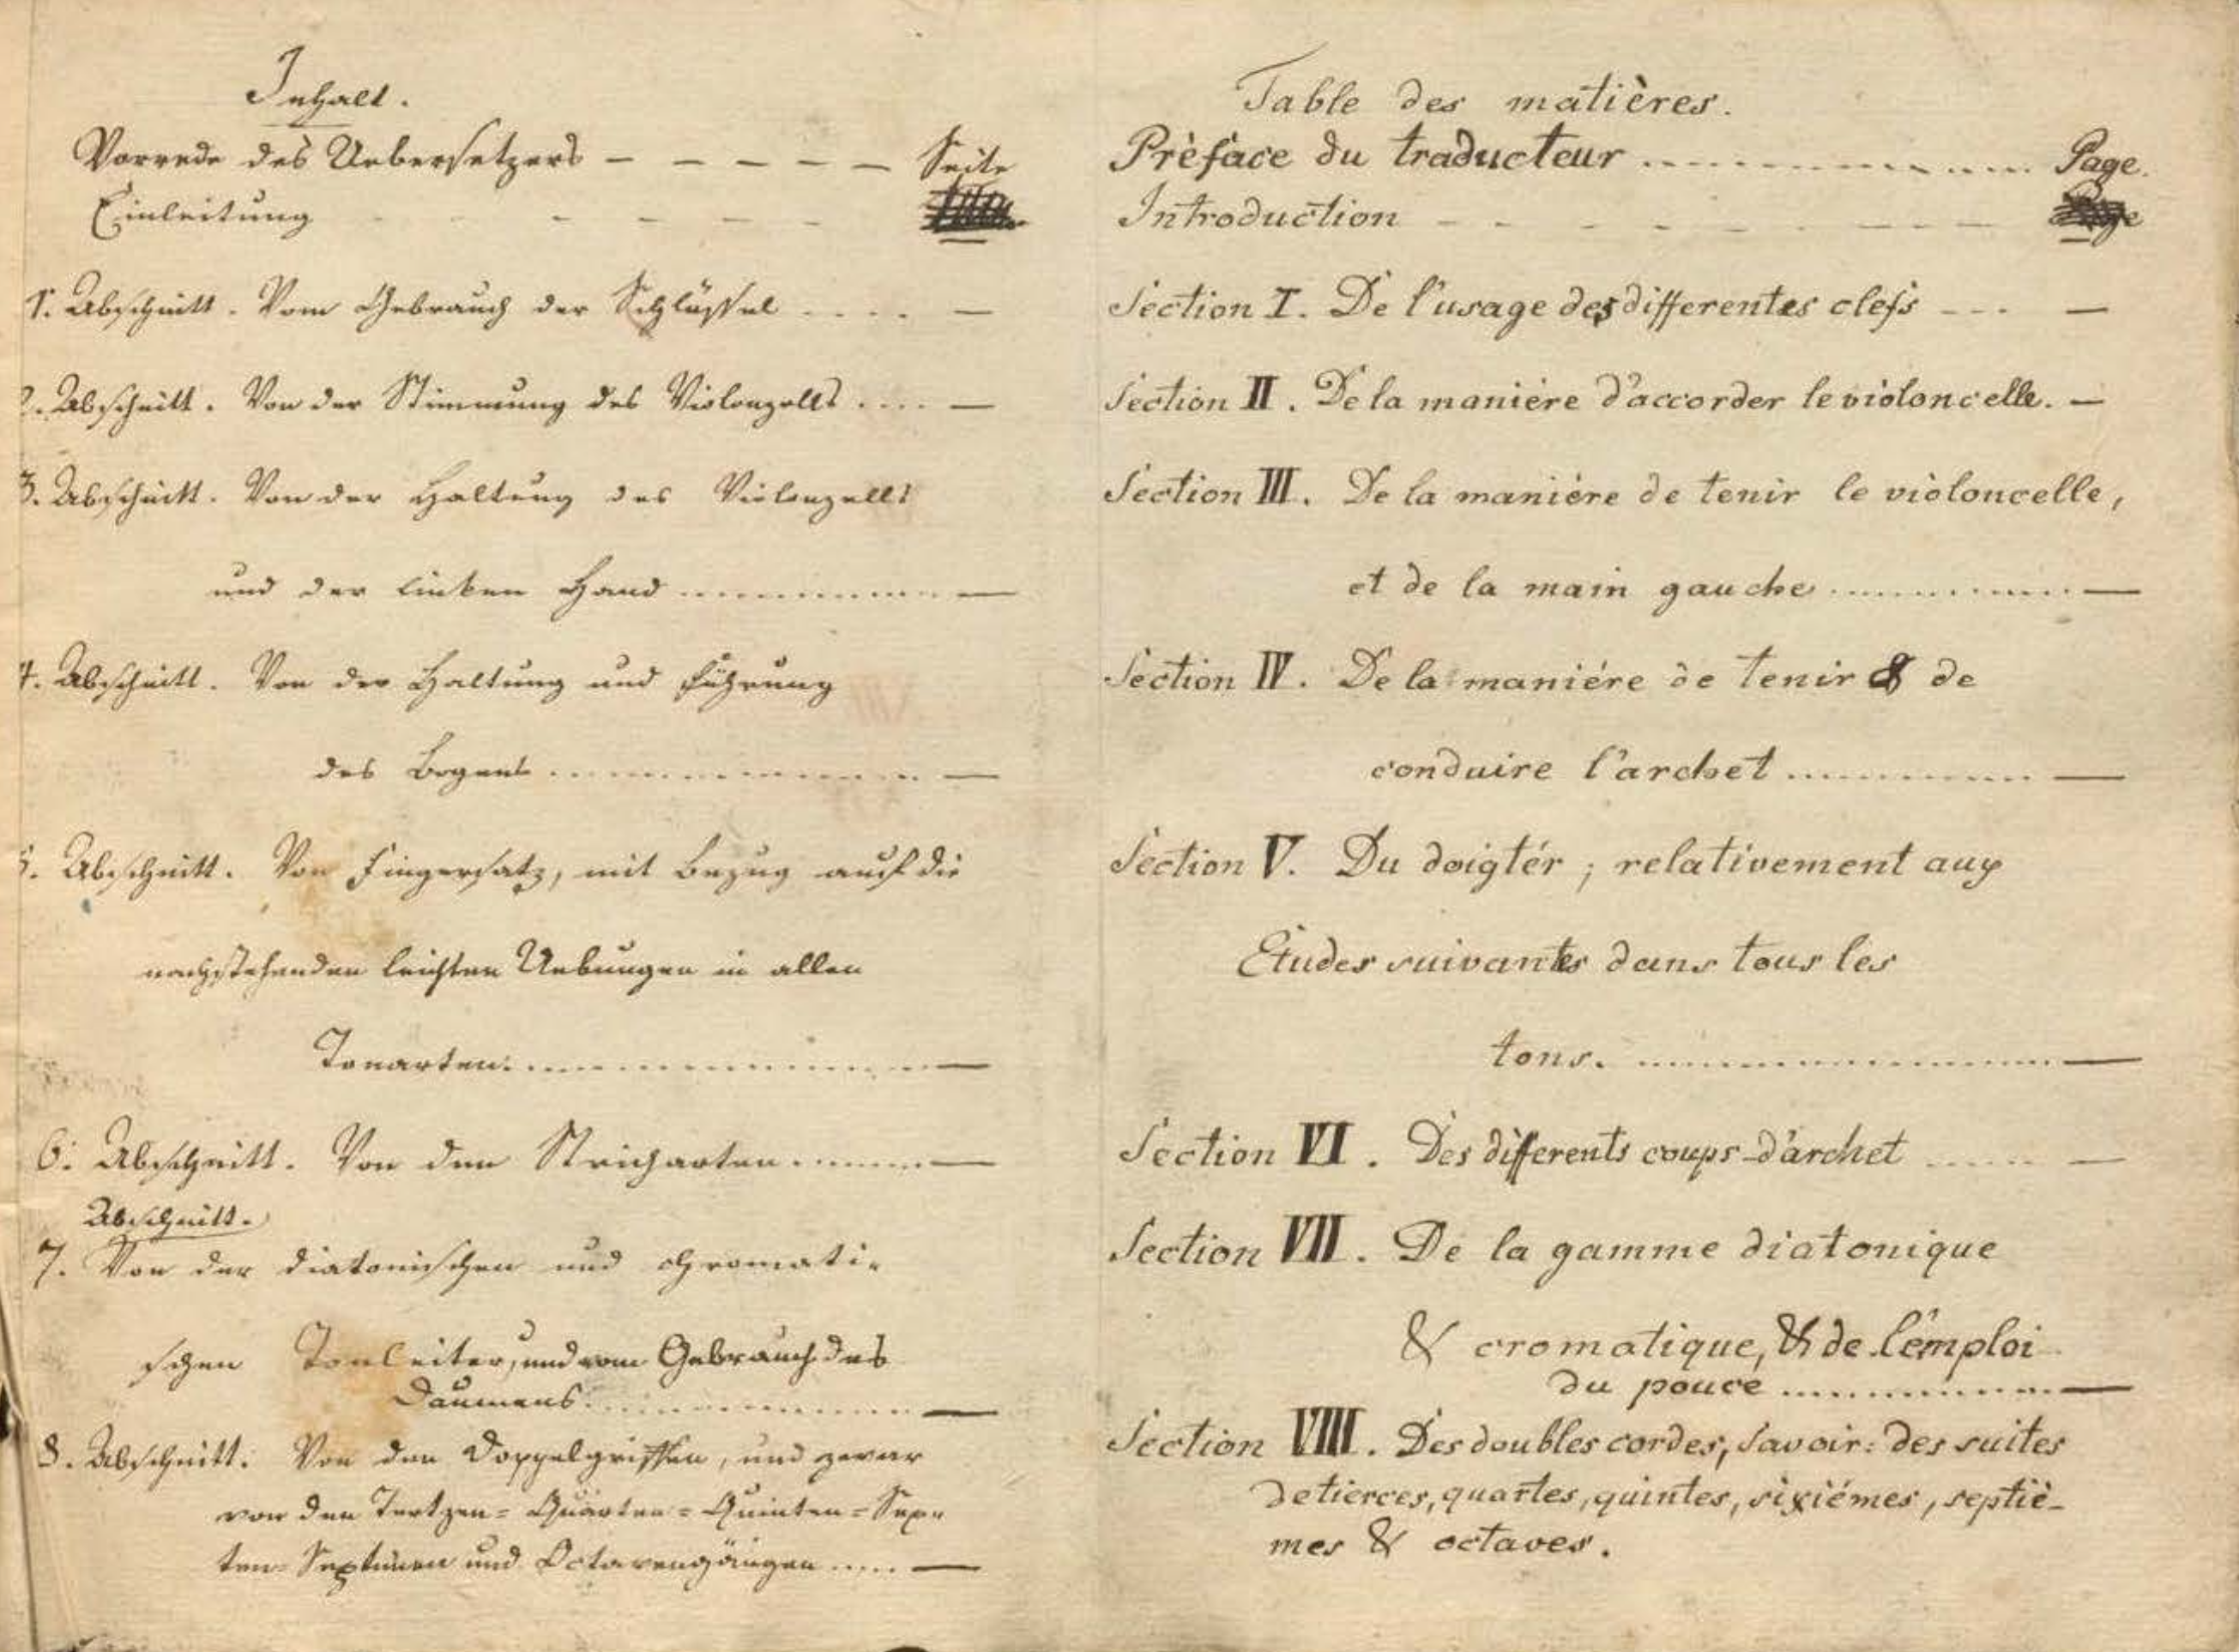 Inhalt.
Vorrede des Uebersetzers - - - - - Seite
Einleitung - - - - -
1. Abschnitt. Vom Gebrauch der Schlüssel .... —
2. Abschnitt. Von der Stimmung des Violonzells .... —
3. Abschnitt. Von der Haltung des Violonzells
und der linken Hand .............. —
4. Abschnitt. Von der Haltung und Führung
des Bogens .............. —
5. Abschnitt. Von Fingersatz, mit Bezug auf die
nachstehenden leichten Uebungen in allen
Tonarten. .............. —
6. Abschnitt. Von den Stricharten ........ —
Abschnitt.
7. Von der diatonischen und chromati-
schen Tonleiter, und vom Gebrauch des
Daumens. .............. —
8. Abschnitt. Von den Doppelgriffen, und zwar
von den Tertzen= Quarten= Quinten= Sex=
ten= Septimen und Octavengängen ..... —
Table des matières.
Prèface du traducteur .............. Page.
Introduction - - - - - - - -
Section I. De l'usage des differentes clefs --- —
Section II. De la maniére d'accorder le violoncelle. —
Section III. De la maniére de tenir le violoncelle,
et de la main gauche .............. —
Section IV. De la maniére de tenir & de
conduire l'archet .............. —
Section V. Du doigtér; relativement aux
Études suivantes dans tous les
tons. .............. —
Section VI. Des differents coups-d'archet ..... —
Section VII. De la gamme diatonique
& cromatique, & de l'emploi
du pouce .............. —
Section VIII. Des doubles cordes, savoir: des suites
de tierces, quartes, quintes, sixiémes, septiè-
mes & octaves.